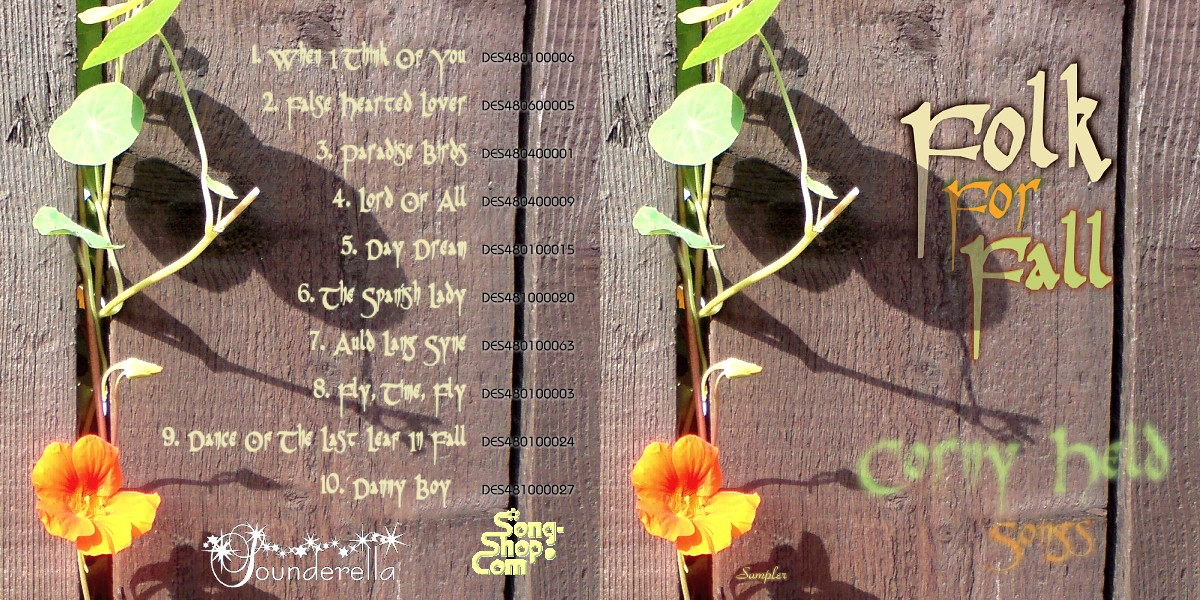 1. When I Think Of You DES480100006
2. False Hearted Lover DES480600005
3. Paradise Birds DES480400001
4. Lord Of All DES480400009
5. Day Dream DES480100015
6. The Spanish Lady DES481000020
7. Auld Lang Syne DES480100063
8. Fly, Time, Fly DES480100003
9. Dance Of The Last Leaf In Fall DES480100024
10. Danny Boy DES481000027
Sounderella
Song-
Shop.
Com
Folk
For
Fall
Corny Held
Songs
Sampler